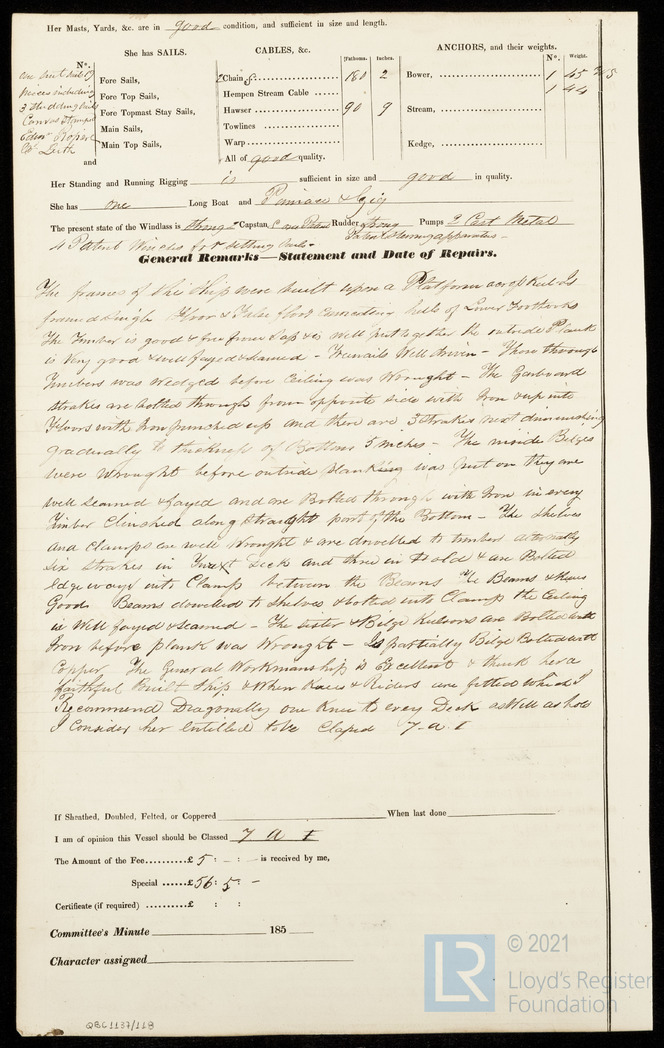 Her Masts, Yards, &c. are in good condition, and sufficient in size and length.
She has SAILS.
CABLES, &c.
ANCHORS, and their weights.
Nº.
Fathoms. Inches.
Nº. Weight.
one suit sails of
pieces including
3 studding sails
Canvas Stamped
Leith
Fore Sails,
Fore Top Sails,
Fore Topmast Stay Sails,
Main Sails,
Main Top Sails,
and
2 Chains 180 2
Hempen Stream Cable
Hawser 90 9
Towlines
Warp
All of good quality.
Bower, 1 45
1 44
Stream,
Kedge,
Her Standing and Running Rigging is sufficient in size and good in quality.
She has one Long Boat and Pinnace & Gig
The present state of the Windlass is strong Capstan, Rudder strong Pumps 2 Cast Metal
4 Patent Winches for setting Sails - Patent Steering apparatus -
General Remarks—Statement and Date of Repairs.
The frames of this Ship were built upon a Platform across Keel is
framed & high Floor & False floor connecting heels of Lower Foothooks
The Timber is good & free from Sap & is well put together the outside Plank
is Very good & well fayed & seamed - Treenails Well driven - Those through
Timbers was wedged before Ceiling was Wrought - The Garboard
strakes are bolted through from opposite side with Iron & up into
Floors with Iron punched up and there are 3 Strakes next diminishing
gradually to thickness of Bottom 5 inches - The inside Bilges
were wrought before outside planking was put on they are
well seamed & fayed and are Bolted through with Iron in every
Timber Clenched along straight part of the Bottom - The Shelves
and Clamps are well Wrought & are dowelled to timbers alternately
six strakes in Deck and three in Hold & are Bolted
edgeways into Clamp between the Beams The Beams & Knees
Good Beams dowelled to Shelves & bolted into Clamp the Ceiling
is Well fayed & seamed - The sister & Bilge Kelsons are Bolted with
Iron before plank was Wrought - Is partially Bilge Bolted with
Copper The General Workmanship is Excellent & think her a
faithful Built Ship & When Knees & Riders are fitted which I
Recommend Diagonally one Knee to every Deck as Well as hold
I consider her Entitled to be Classed 7 A 1
If Sheathed, Doubled, Felted, or Coppered When last done
I am of opinion this Vessel should be Classed 7 A 1
The Amount of the Fee..........£ 5 : - : - is received by me,
Special ......£ 56 : 5 : -
Certificate (if required) ..........£ : :
Committee's Minute 185
Character assigned
QBG1137/118
LR
© 2021
Lloyd's Register
Foundation